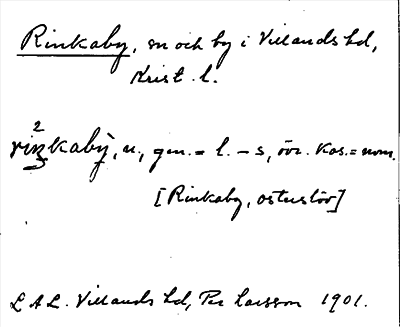 Rinkaby, sn och by i Villands hd,
Krist. l.
rinkaby, n, gen. = l. -s, övr. kas. = nom.
[Rinkaby, ostuslöv]
L A L. Villands hd, Per Larsson 1901.